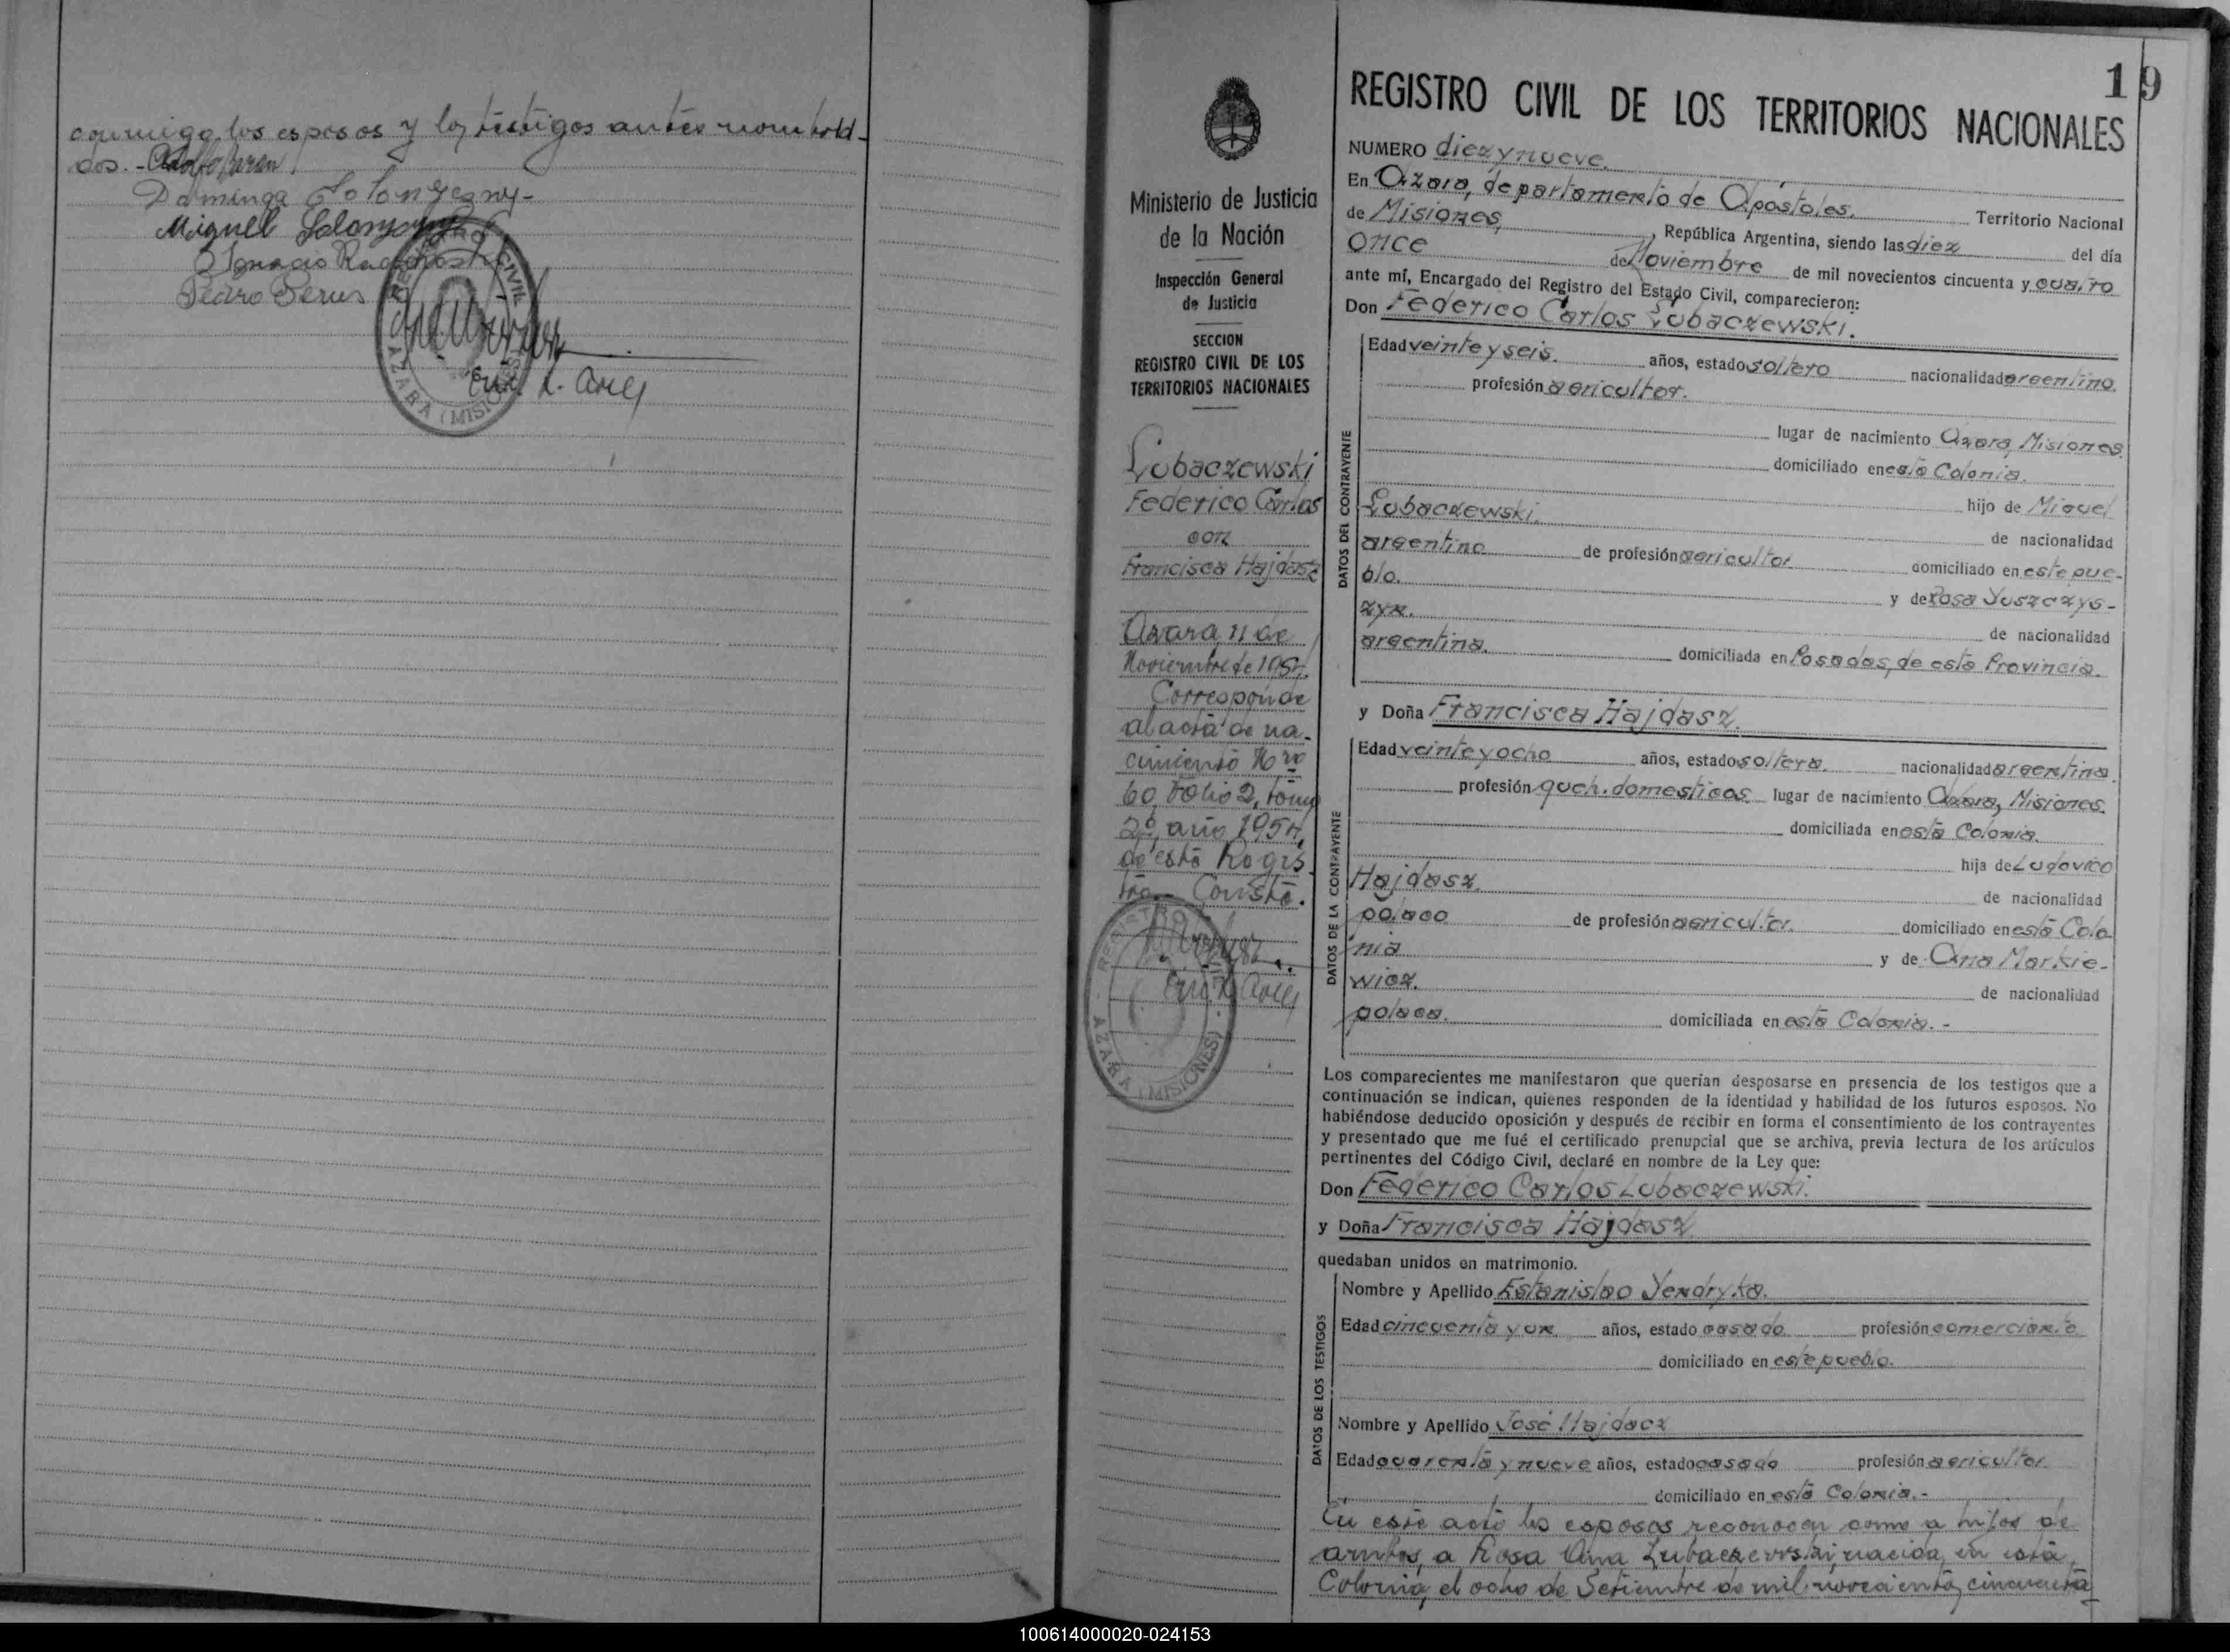 conmigo los esposos y los testigos antes nombra-
dos.-
Dominga
Miguel
Ignacio
Pedro
REGISTRO CIVIL
AZARA (MISIONES)
19
Ministerio de Justicia
de la Nación
Inspección General
de Justicia
SECCION
REGISTRO CIVIL DE LOS
TERRITORIOS NACIONALES
Lubaczewski
Federico Carlos
con
Francisca Hajdasz
Azara, 11 de
Noviembre de 1954.
Corresponde
al acta de na-
cimiento Nro
60, Folio 2, tomo
2º, año 1954,
de este Regis
tro. Conste.
REGISTRO CIVIL
AZARA (MISIONES)
REGISTRO CIVIL DE LOS TERRITORIOS NACIONALES
NUMERO diez y nueve.
En Azara, departamento de Apóstoles. Territorio Nacional
de Misiones, República Argentina, siendo las diez del día
once de Noviembre de mil novecientos cincuenta y cuatro
ante mí, Encargado del Registro del Estado Civil, comparecieron:
Don Federico Carlos Lubaczewski.
DATOS DEL CONTRAYENTE
Edad veinte y seis. años, estado soltero nacionalidad argentino.
profesión agricultor.
lugar de nacimiento Azara, Misiones.
domiciliado en esta Colonia.
hijo de Miguel
Lubaczewski. de nacionalidad
argentino de profesión agricultor domiciliado en este pue-
blo. y de Rosa Juszczys-
zyn. de nacionalidad
argentina. domiciliada en Posadas, de esta Provincia.
y Doña Francisca Hajdasz.
DATOS DE LA CONTRAYENTE
Edad veinte y ocho años, estado soltera. nacionalidad argentina.
profesión queh. domesticos lugar de nacimiento Azara, Misiones.
domiciliada en esta Colonia.
hija de Ludovico
Hajdasz. de nacionalidad
polaco de profesión agricultor. domiciliado en esta Colo
nia y de Ana Markie-
wicz. de nacionalidad
polaca. domiciliada en esta Colonia.-
Los comparecientes me manifestaron que querían desposarse en presencia de los testigos que a
continuación se indican, quienes responden de la identidad y habilidad de los futuros esposos. No
habiéndose deducido oposición y después de recibir en forma el consentimiento de los contrayentes
y presentado que me fué el certificado prenupcial que se archiva, previa lectura de los artículos
pertinentes del Código Civil, declaré en nombre de la Ley que:
Don Federico Carlos Lubaczewski.
y Doña Francisca Hajdasz
quedaban unidos en matrimonio.
DATOS DE LOS TESTIGOS
Nombre y Apellido Estanislao Yendryka.
Edad cincuenta y un años, estado casado profesión comerciante
domiciliado en este pueblo.
Nombre y Apellido José Hajdacz
Edad cuarenta y nueve años, estado casado profesión agricultor
domiciliado en esta Colonia.-
En este acto los esposos reconocen como a hijos de
ambos, a Rosa Ana Lubaczewski, nacida, en esta
Colonia, el ocho de Setiembre de mil novecientos cincuenta
100614000020-024153